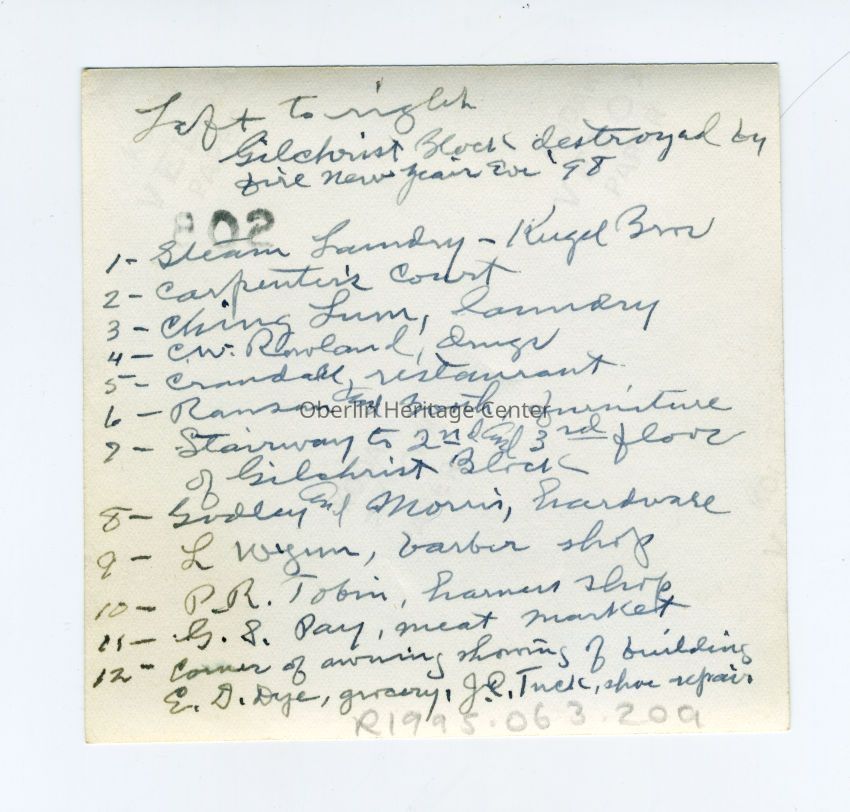 Left to right
Gilchrist Block destroyed by
fire New Year Eve '98
802
1- Steam Laundry - Kugel Bros
2- Carpenter's Court
3- Ching Lum, laundry
4- C.W. Rowland, drugs
5- Crandall, restaurant
6- Ransom and furniture
Oberlin Heritage Center
7- Stairway to 2nd and 3rd floor
of Gilchrist Block
8- Godley and Morris, hardware
9- L Wynn, barber shop
10- P.R. Tobin, harness shop
11- G. S. Pay, meat market
12- Corner of awning showing of building
E. D. Dye, grocery. J.C. Tuck, shoe repair.
R1995.063.20a